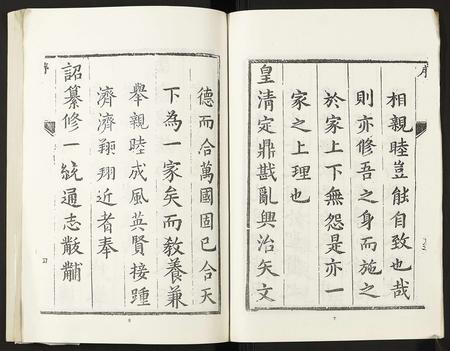 序
相親睦豈能自致也哉
則亦修吾之身而施之
於家上下無怨是亦一
家之上理也
皇清定鼎戡亂興治矢文
7
德而合萬國固已合天
下為一家矣而教養兼
舉親睦成風英賢接踵
濟濟翔翔近者奉
詔纂修一統通志黻黼
序